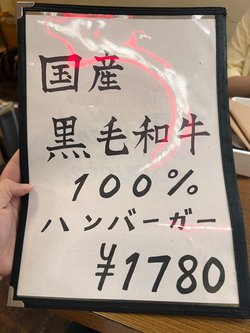 国産
黒毛和牛
100%
ハンバーガー
¥1780